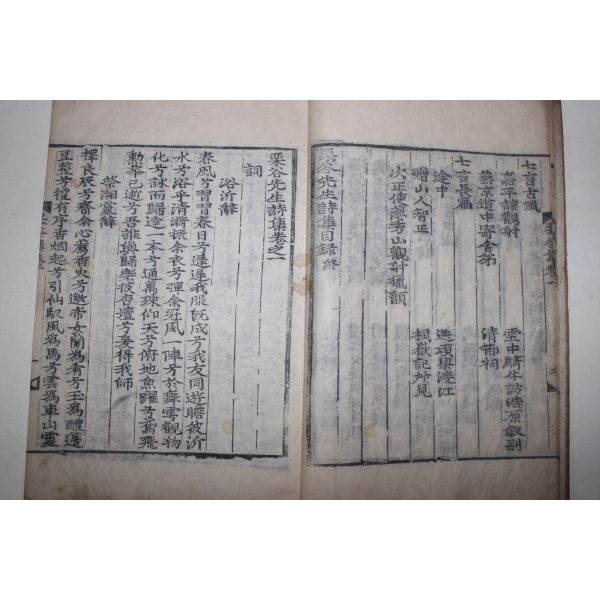 七言古風
嘉平館觀射
雪中騎牛訪浩原叙别
燕京道中寄舍弟
清佛祠
七言長篇
途中
送項眾渡江
贈山人智正
楓嶽記所見
次正使葱秀山觀射獵韻
栗谷先生詩集目録終
栗谷先生詩集卷之一
詞
浴沂辭
春風兮習習春日兮遲遲我服旣成兮我友同遊瞻彼沂
水兮浴乎清漪振余衣兮彈余冠風一陣兮於舞雩觀物
化兮詠而歸達一本兮通萬殊仰天兮俯地魚躍兮鳶飛
動莘已逝兮吾誰與歸樂彼杏壇兮爰得我師
祭湘靈辭
擇良辰兮齋余心薦香火兮邀帝女蘭爲肴兮玉爲醴籩
豆整兮程有序香烟起兮引仙馭風爲馬兮雲爲車山靈